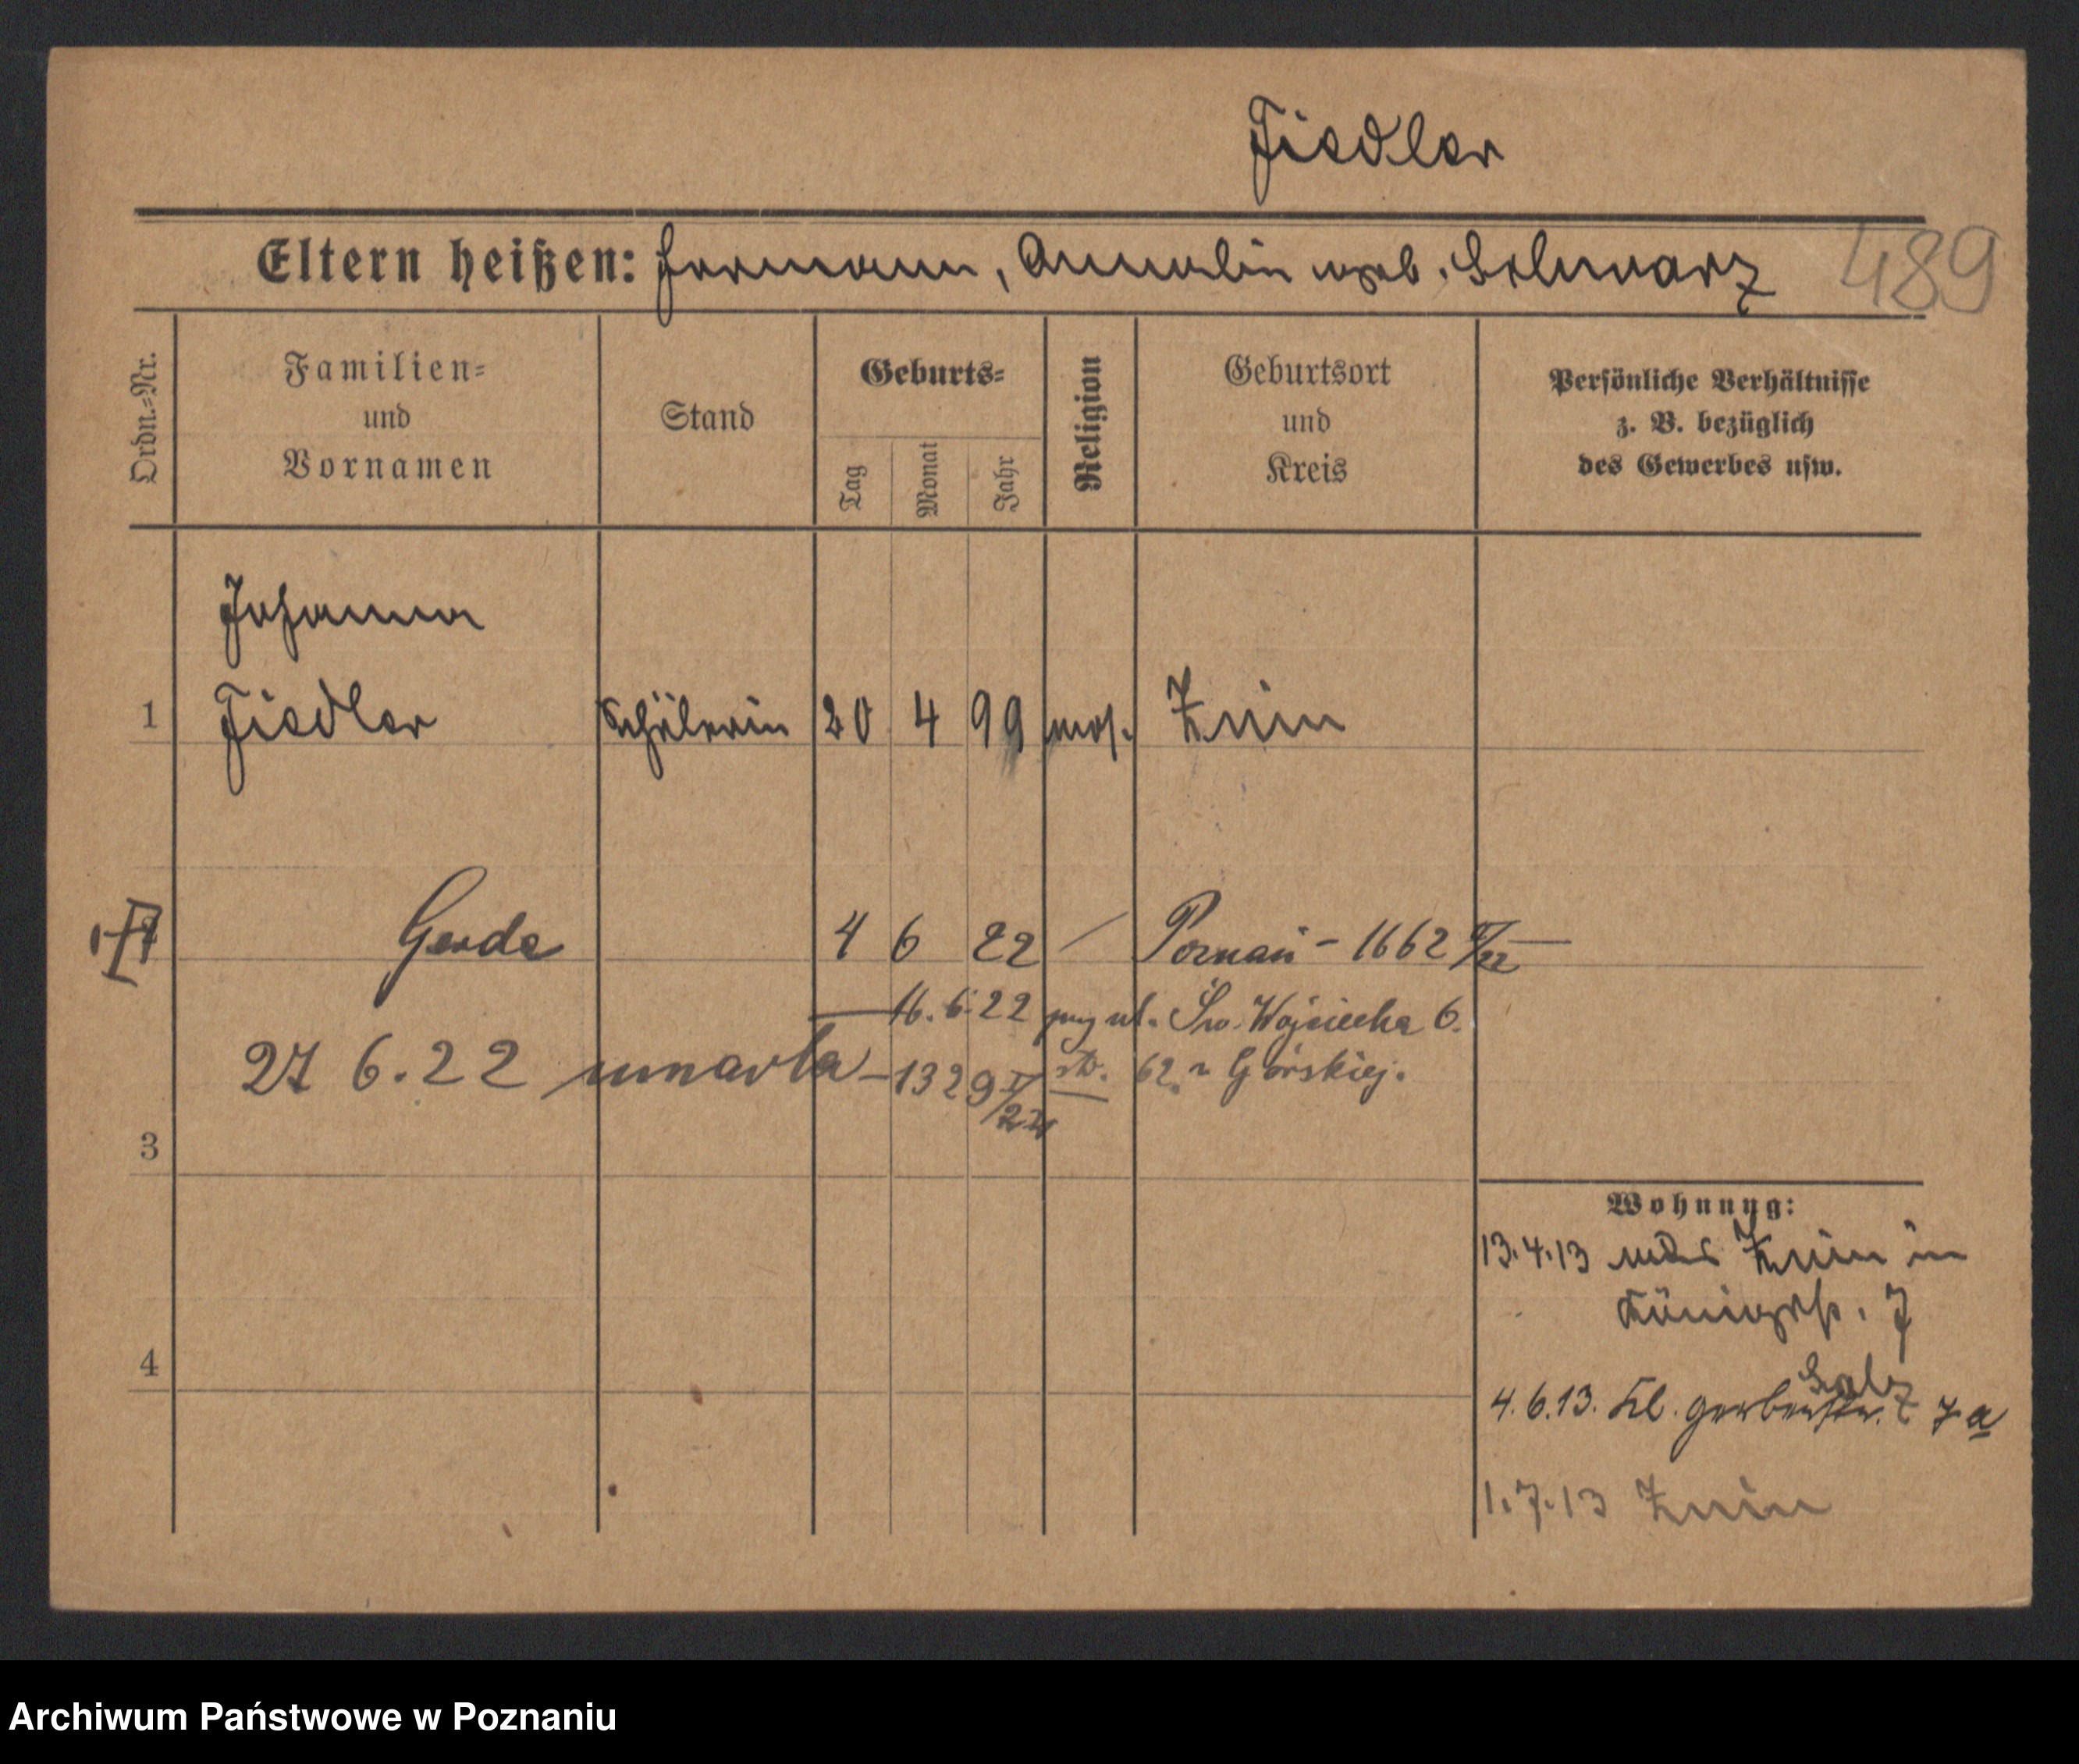 Fiedler
Eltern heißen: Hermann, Annalin geb. Schwarz 489
Ordn.=Nr.
Familien=
und
Vornamen
Stand
Geburts=
Tag
Monat
Jahr
Religion
Geburtsort
und
Kreis
Persönliche Verhältnisse
z. B. bezüglich
des Gewerbes usw.
Johanna
1 Fiedler Schülerin 20 4 99 mos. Znin
Gerda 4 6 22 Poznań - 1662
16.6.22 przy ul. Św. Wojciecha 6.
27 6.22 umarła - 1329 62. Górskiej.
3
Wohnung:
13.4.13 Znin in
Königstr. 7
4
4.6.13. Kl. Gerberstr. 7a
1.7.13 Znin
Archiwum Państwowe w Poznaniu